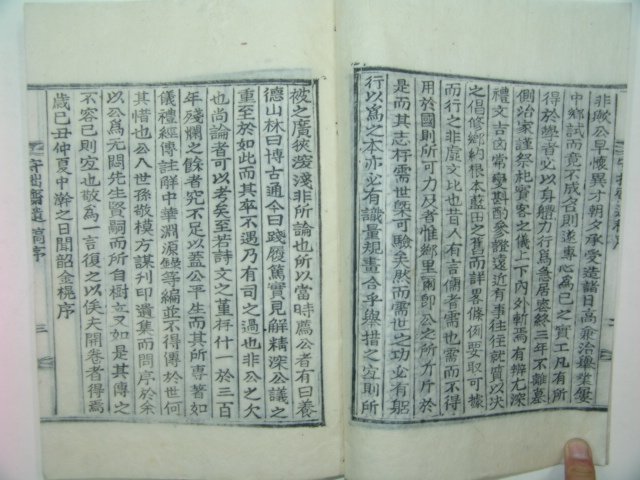 非歟公早懷異才朝夕承受造諸日高兼治擧業屢
中鄕試而竟不成名則遂專心爲己之實工凡有所
得於學者必以身體力行爲急居憂終三年不離墓
側治家謹祭祀賓客之儀上下內外斬焉有辨尤深
禮文吉凶常變斟酌參證遠近有事往往就質以決
之倡修鄕約根本藍田之舊而詳畧條例要取可據
而行之非虛文比也昔人有言儒者需也需而不得
用於國則可以移之鄕里爾卽公之所力斤斤於
是而其志行需世槩可驗矣然而需世之功必有躬
行以爲之本亦必有識量規畫合乎擧措之宜則所
被之廣狹淺深非所論也所以當時薦公者有曰養
德山林曰博古通今曰踐履篤實見解精深公議之
重至於如此而其卒不遇乃有司之過也非公之欠
也尙論者可以考矣至若詩文之菫存什一於三百
年殘爛之餘者究不足以蓋公平生而其所專著如
儀禮經傳註解中華淵源錄等編並不得傳於世何
其惜也公八世孫敬模方謀刋印遺集而問序於余
以公爲无悶先生賢嗣而所自樹立又如是其傳之
不容已則宜也敬爲一言復之以俟夫開卷者得焉
歲己丑仲夏中澣之日聞韶金榥序
守拙齋遺稿序